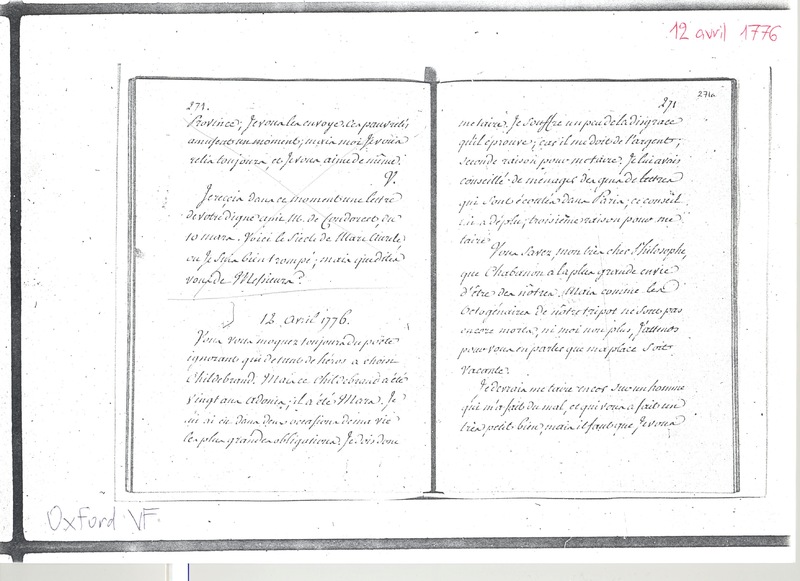 12 avril 1776
271a
274.
Province; Je vous les envoye. Ces pauvretés
amusent un moment; mais moi Je vous
relis toujours, et Je vous aime de même.
V.
Je reçois dans ce moment une lettre
de votre digne ami M. de Condorcet, du
10 mars. Voici le Siecle de Marc Aurele,
ou Je suis bien trompé; mais que dites
vous de Messieurs?
12. Avril 1776.
Vous vous moquez toujours du poëte
ignorant qui de tant de héros a choisi
Childebrand. Mais ce Childebrand a été
vingt ans Adonis; il a été Mars. Je
lui ai eu dans deux occasions de ma vie
les plus grandes obligations. Je dois donc
271
me taire. Je souffre un peu de la disgrace
qu'il éprouve; car il me doit de l'argent;
seconde raison pour me taire. Je lui avais
conseillé de ménager des gens de lettres
qui sont écoutés dans Paris; ce conseil
lui a déplu; troisième raison pour me
taire.
Vous savez, mon très cher Philosophe,
que Chabanon a la plus grande envie
d'être des nôtres. Mais comme les
Octogénaires de nôtre tripot ne sont pas
encore morts, ni moi non plus, J'attens
pour vous en parler que ma place soit
vacante.
Je devrais me taire encor sur un homme
qui m'a fait du mal, et qui vous a fait un
très petit bien; mais il faut que Je vous
Oxford VF